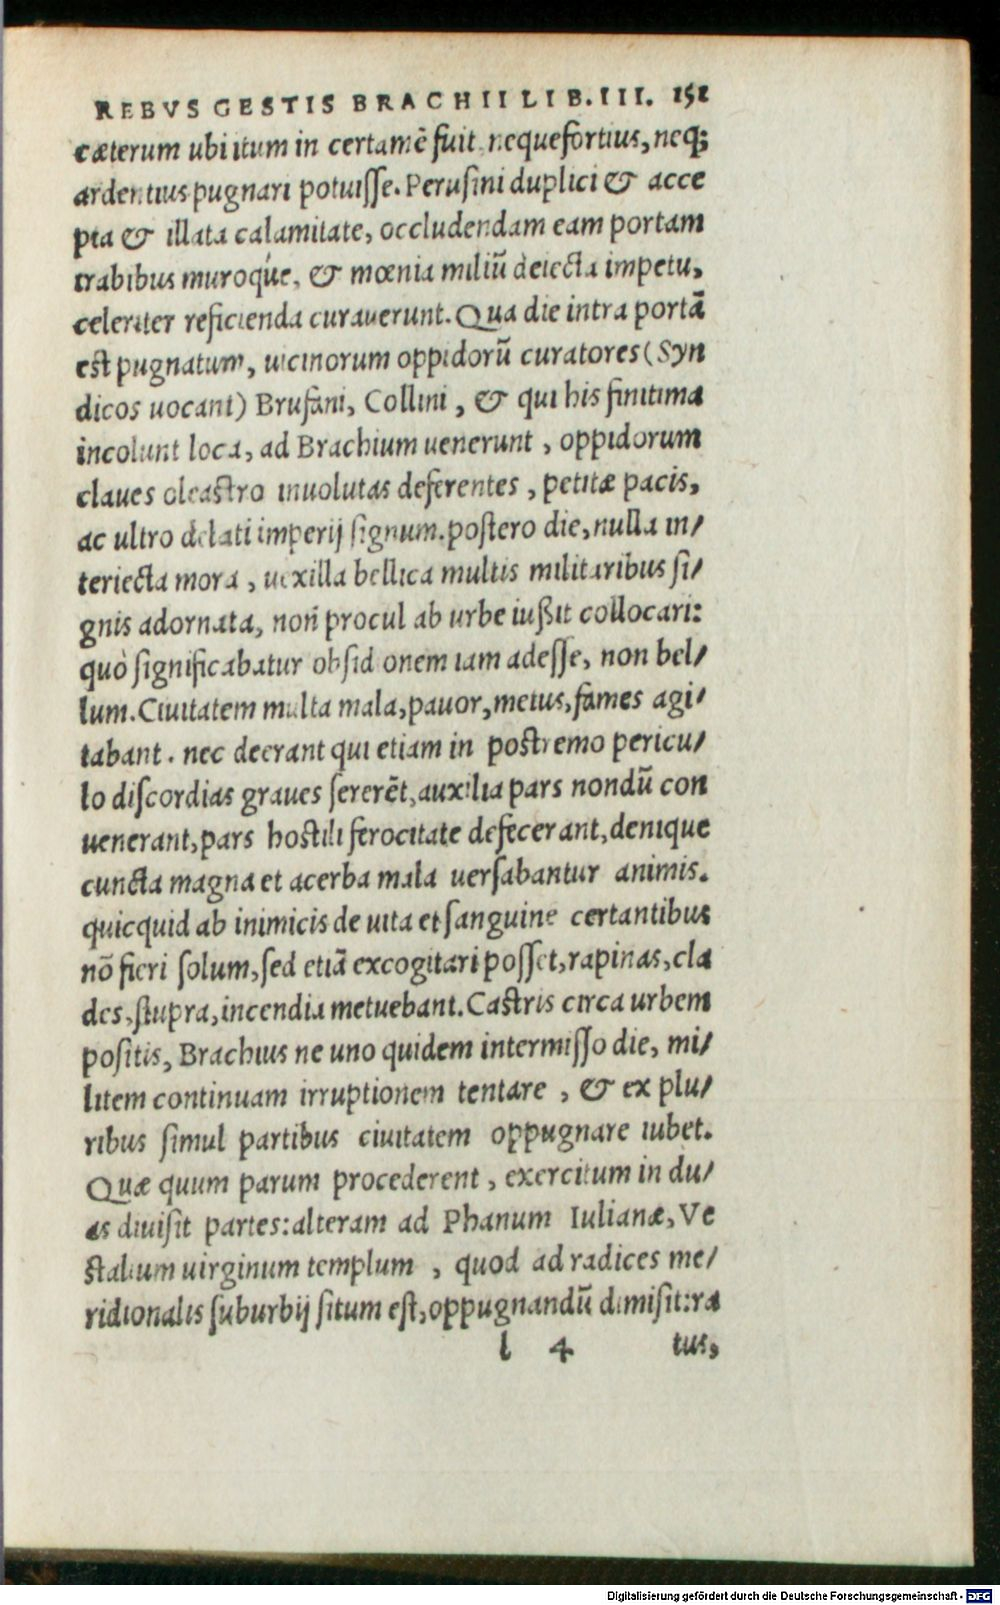 REBVS GESTIS BRACHII LIB. III. 151
cæterum ubi itum in certamẽ fuit nequefortius, neq;
ardentius pugnari potuisse. Perusini duplici & acce
pta & illata calamitate, occludendam eam portam
trabibus muroq́ue, & mœnia miliũ deiecta impetu,
celeriter reficienda curauerunt. Qua die intra portã
est pugnatum, uicinorum oppidorũ curatores (Syn
dicos uocant) Brufani, Collini, & qui his finitima
incolunt loca, ad Brachium uenerunt, oppidorum
claues oleastro inuolutas deferentes, petitæ pacis,
ac ultro delati imperij signum. postero die, nulla in/
teriecta mora, uexilla bellica multis militaribus si/
gnis adornata, non procul ab urbe iußit collocari:
quò significabatur obsid onem iam adesse, non bel/
lum. Ciuitatem multa mala, pauor, metus, fames agi/
tabant. nec deerant qui etiam in postremo pericu/
lo discordias graues sererẽt, auxilia pars nondũ con
uenerant, pars hostili ferocitate defecerant, denique
cuncta magna et acerba mala uersabantur animis.
quicquid ab inimicis de uita et sanguine certantibus
nõ fieri solum, sed etiã excogitari posset, rapinas, cla
des, stupra, incendia metuebant. Castris circa urbem
positis, Brachius ne uno quidem intermisso die, mi/
litem continuam irruptionem tentare, & ex plu/
ribus simul partibus ciuitatem oppugnare iubet.
Quæ quum parum procederent, exercitum in du/
as diuisit partes: alteram ad Phanum Iulianæ, Ve
stalium uirginum templum, quod ad radices me/
ridionalis suburbij situm est, oppugnandũ dimisit: ra
l 4 tus,
Digitalisierung gefördert durch die Deutsche Forschungsgemeinschaft - DFG